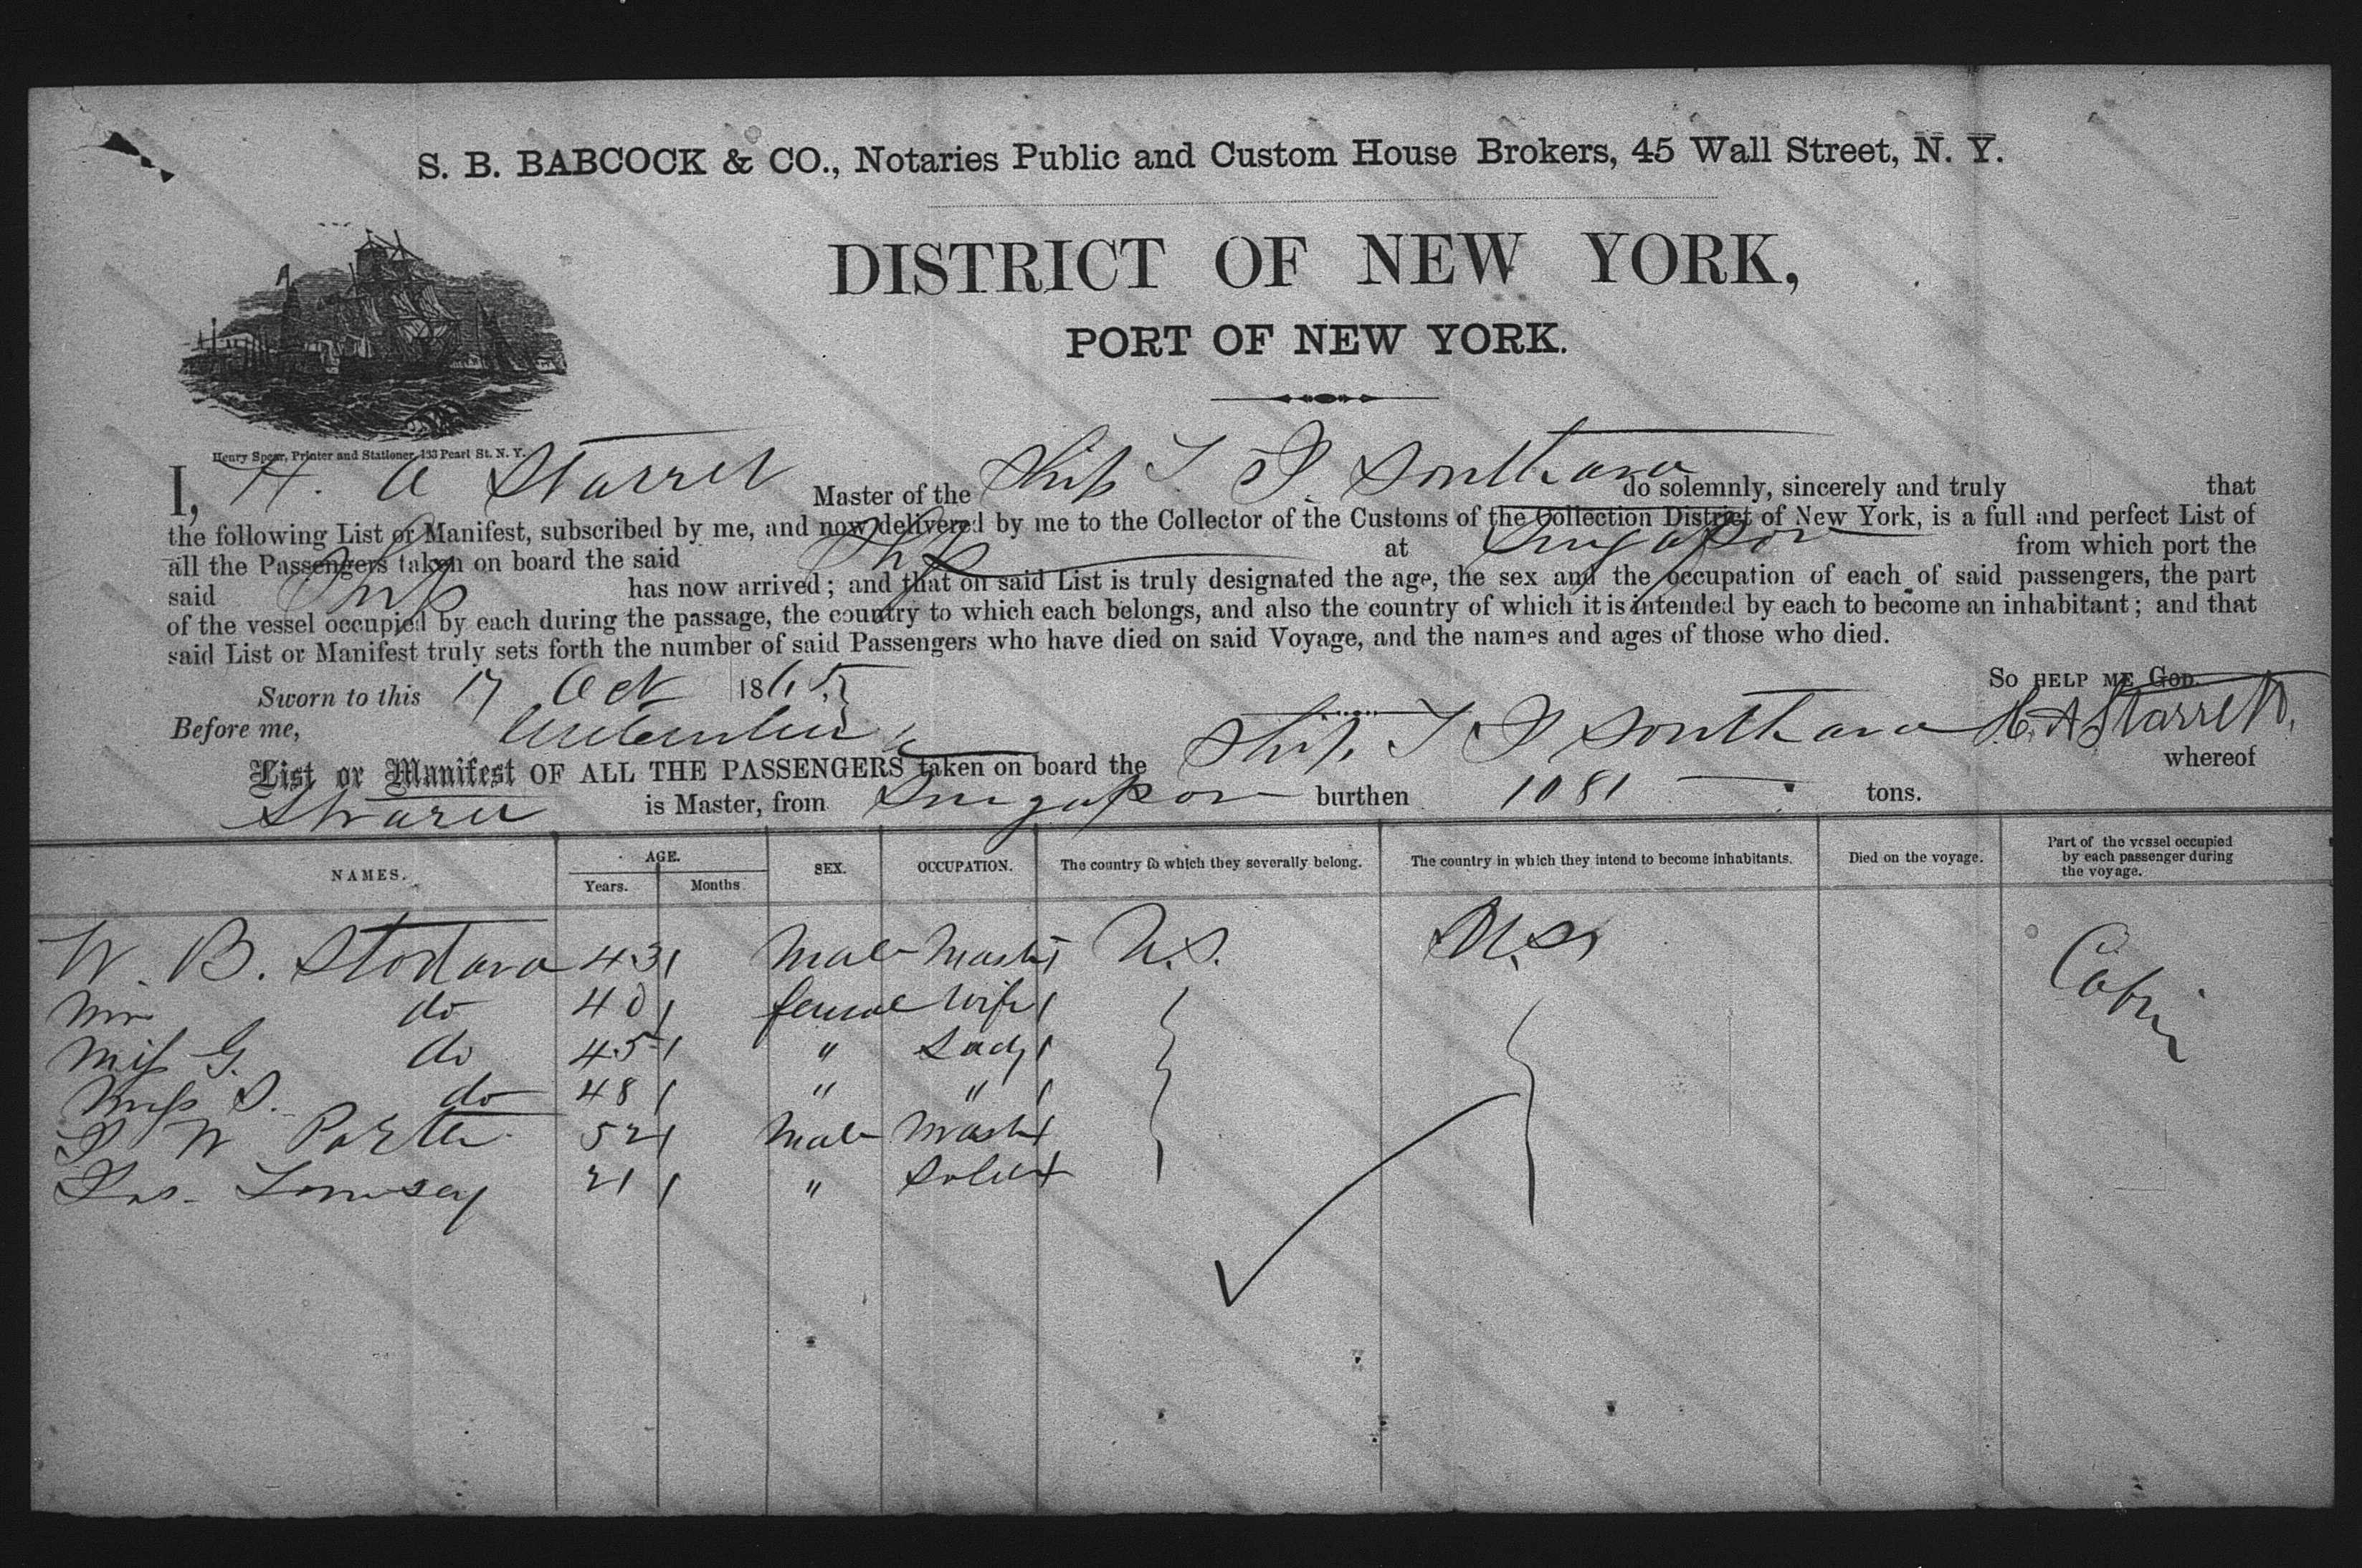 S. B. BABCOCK & CO., Notaries Public and Custom House Brokers, 45 Wall Street, N. Y.
DISTRICT OF NEW YORK,
PORT OF NEW YORK.
Henry Spear, Printer and Stationer, 133 Pearl St. N. Y.
I, H. A Starret Master of the Ship T. F Southard do solemnly, sincerely and truly that
the following List or Manifest, subscribed by me, and now delivered by me to the Collector of the Customs of the Collection District of New York, is a full and perfect List of
all the Passengers taken on board the said Ship at Singapor from which port the
said Ship has now arrived; and that on said List is truly designated the age, the sex and the occupation of each of said passengers, the part
of the vessel occupied by each during the passage, the country to which each belongs, and also the country of which it is intended by each to become an inhabitant; and that
said List or Manifest truly sets forth the number of said Passengers who have died on said Voyage, and the names and ages of those who died.
So HELP ME GOD.
Sworn to this 17 Oct 1865
Before me, H. A Starrett,
List or Manifest OF ALL THE PASSENGERS taken on board the Ship T F Southard whereof
is Master, from Singapor burthen 1081 tons.
NAMES. AGE. Years. Months SEX. OCCUPATION. The country to which they severally belong. The country in which they intend to become inhabitants. Died on the voyage. Part of the vessel occupied by each passenger during the voyage.
W. B. Stodard 43 Male U.S. U.S. Cabin
do 40 female Wife
Miss G. do 45 " Lady
Miss S. do 48 " "
W Porter 52 Male
21 "